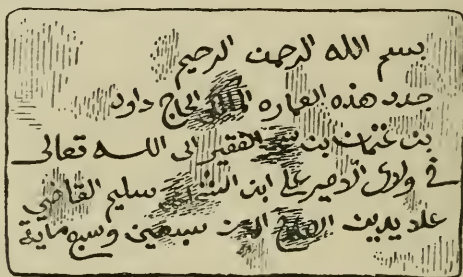 بسم الله الرحمن الرحيم
جدد هذه العماره الحاج داود
بن عثمان بن الفقير الى الله تعالى
في ولاى الامير على ابن سليم القاضي
على يدين سبعين وسبع ماية